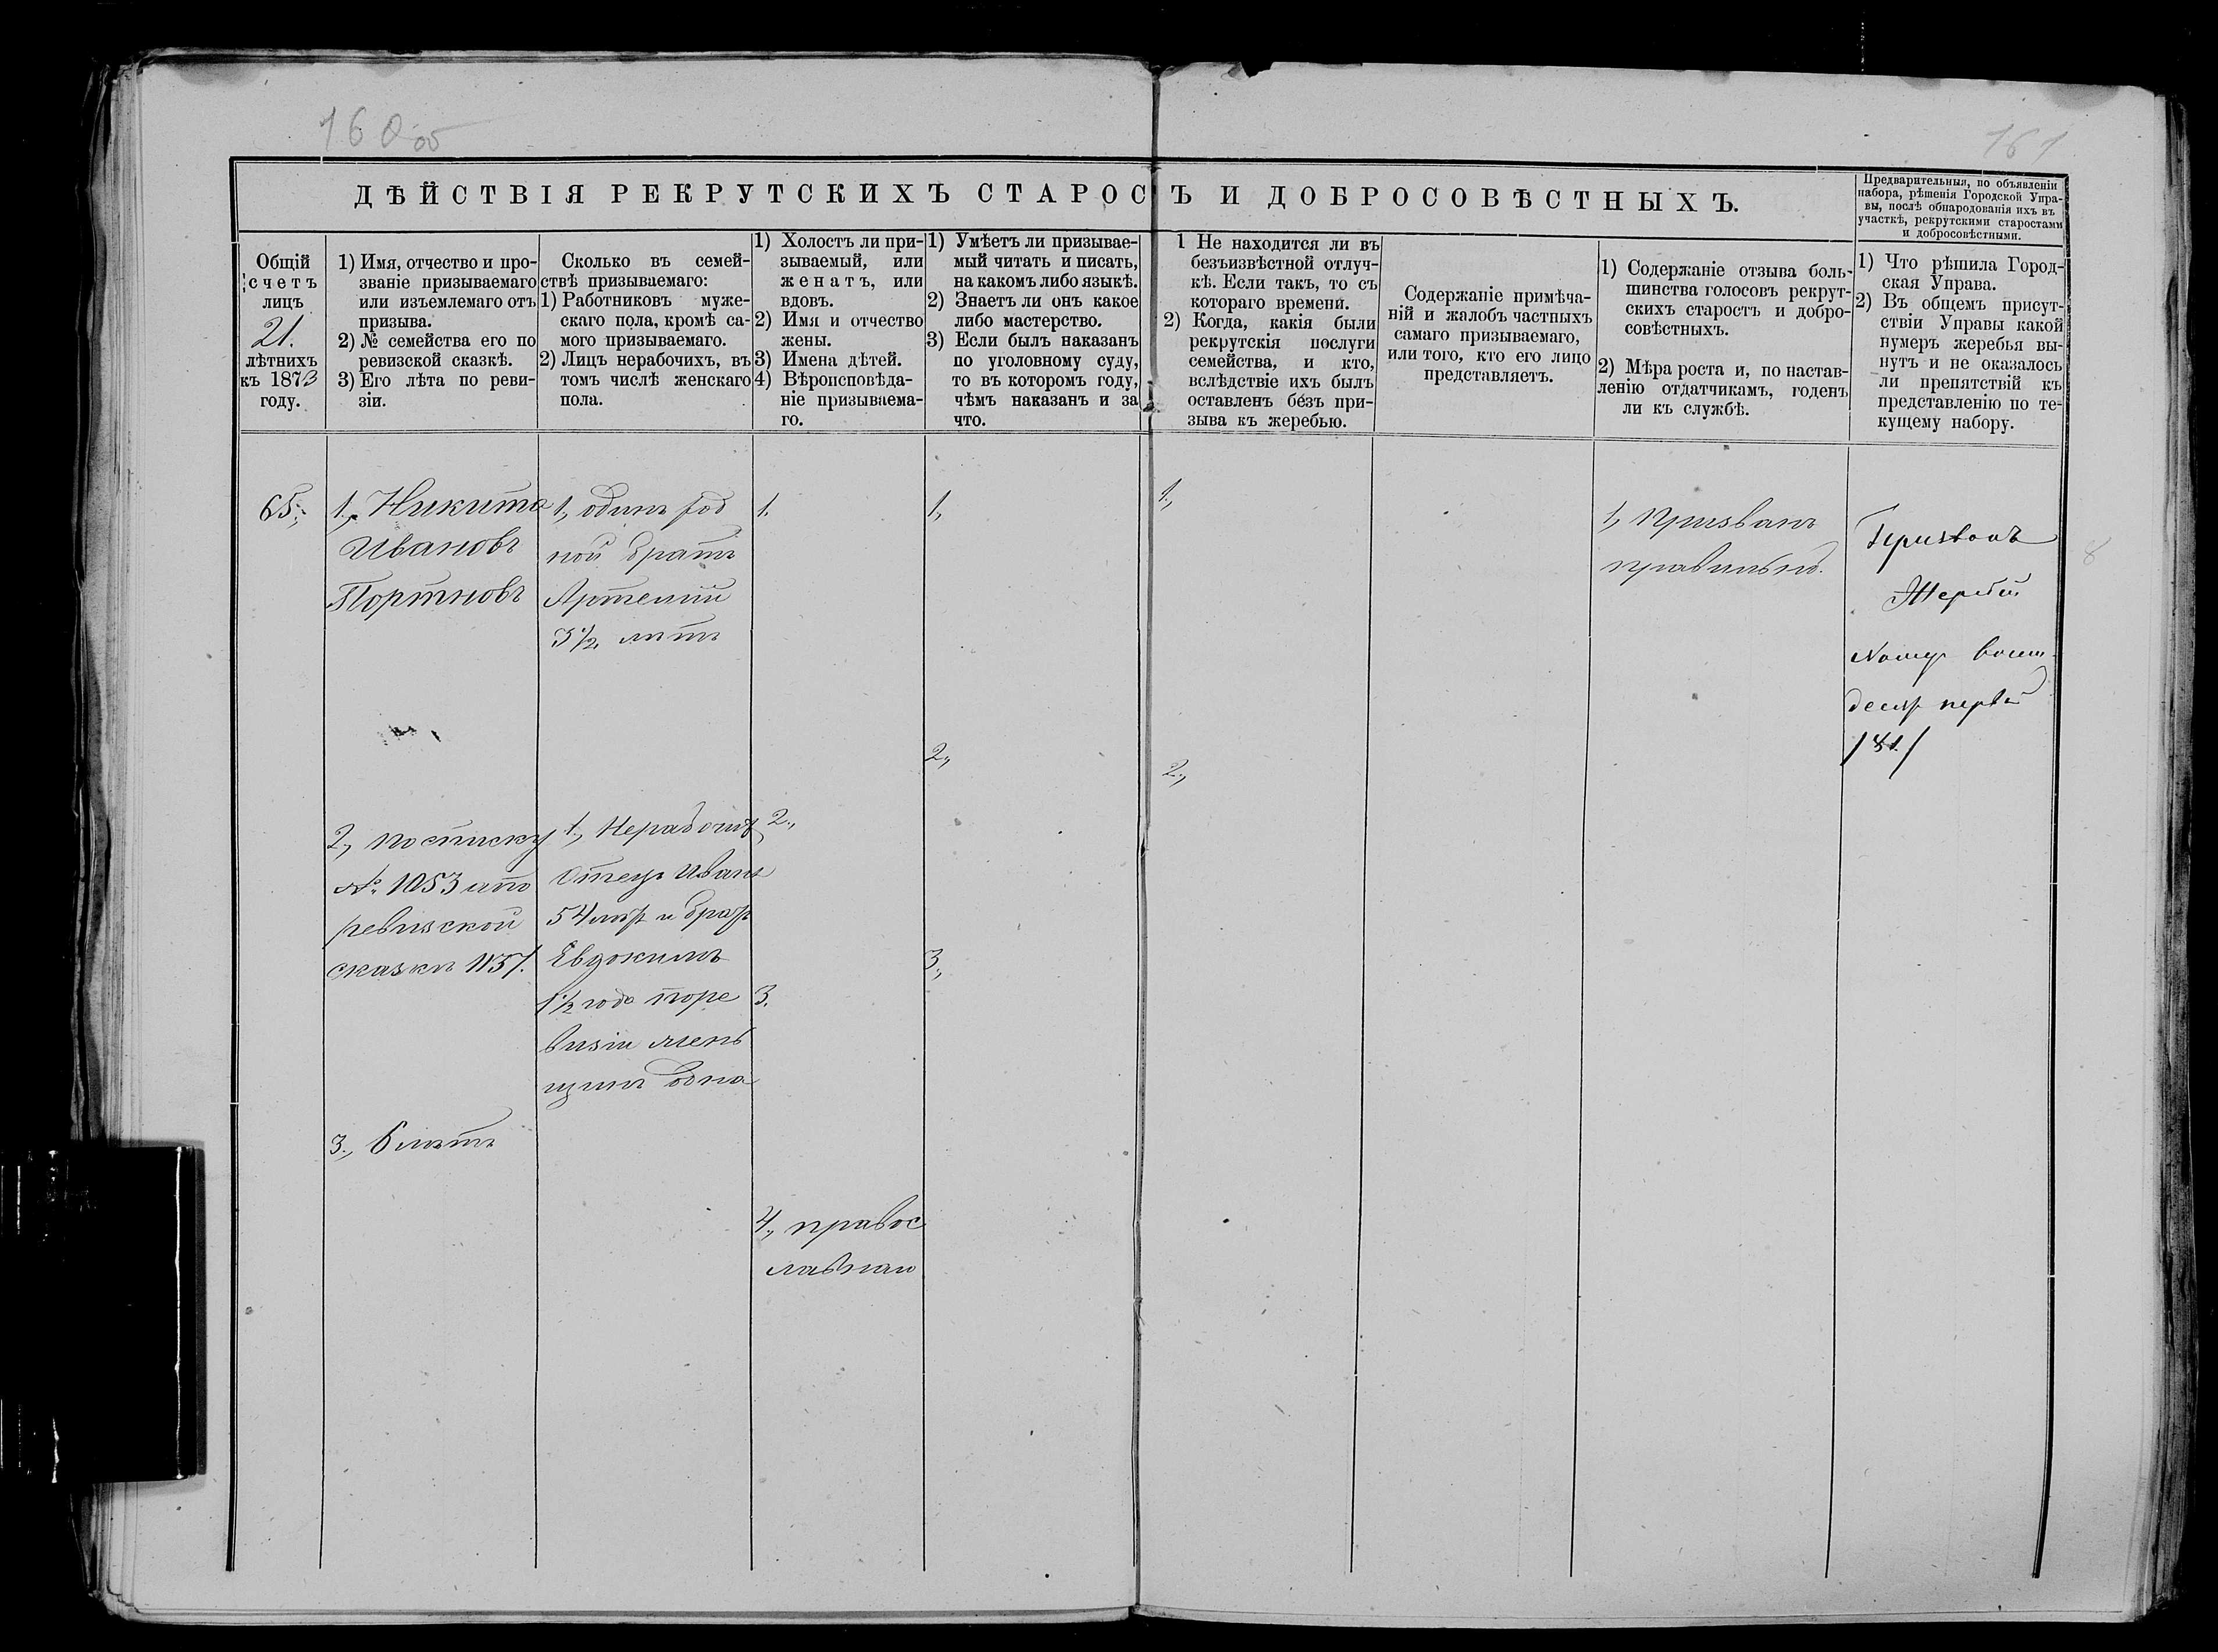 160 об
161
ДѢЙСТВІЯ РЕКРУТСКИХЪ СТАРОС Ъ И ДОБРОСОВѢСТНЫХЪ.
Предварительныя, по объявленіи
набора, рѣшенія Городской Упра-
вы, послѣ обнародованія ихъ въ
участкѣ, рекрутскими старостами
и добросовѣстными.
Общій
счетъ
лицъ
21.
лѣтнихъ
къ 1873
году.
1) Имя, отчество и про-
званіе призываемаго
или изъемлемаго отъ
призыва.
2) № семейства его по
ревизской сказкѣ.
3) Его лѣта по реви-
зіи.
Сколько въ семей-
ствѣ призываемаго:
1) Работниковъ муже-
скаго пола, кромѣ са-
мого призываемаго.
2) Лицъ нерабочихъ, въ
томъ числѣ женскаго
пола.
1) Холостъ ли при-
зываемый, или
женатъ, или
вдовъ.
2) Имя и отчество
жены.
3) Имена дѣтей.
4) Вѣроисповѣда-
ніе призываема-
го.
1) Умѣетъ ли призывае-
мый читать и писать,
на какомъ либо языкѣ.
2) Знаетъ ли онъ какое
либо мастерство.
3) Если былъ наказанъ
по уголовному суду,
то въ которомъ году,
чѣмъ наказанъ и за
что.
1 Не находится ли въ
безъизвѣстной отлуч-
кѣ. Если такъ, то съ
котораго времени.
2) Когда, какія были
рекрутскія послуги
семейства, и кто,
вслѣдствіе ихъ былъ
оставленъ безъ при-
зыва къ жеребью.
Содержаніе примѣча-
ній и жалобъ частныхъ
самаго призываемаго,
или того, кто его лицо
представляетъ.
1) Содержаніе отзыва боль-
шинства голосовъ рекрут-
скихъ старостъ и добро-
совѣстныхъ.
2) Мѣра роста и, по настав-
ленію отдатчикамъ, годенъ
ли къ службѣ.
1) Что рѣшила Город-
ская Управа.
2) Въ общемъ присут-
ствіи Управы какой
нумеръ жеребья вы-
нутъ и не оказалось
ли препятствій къ
представленію по те-
кущему набору.
65.,
1., Никита
Ивановъ
Портновъ
2., по списку
№ 1053 ито
ревизской
сказкѣ 1137.
3., 6 лѣтъ
1., одинъ род
ной братъ
Артемій
3½, лѣтъ
1., Нерабочихъ
Отецъ Иванъ
54 лѣтъ и братъ
Евдокимъ
1½ года поре
визіи жень
щинъ одна
1.
2.,
3.
4., правос
лавнаго
1,
2.,
3.,
1.,
2.,
1, Призванъ
правильно.
Призванъ
Жеребій
Номеръ восем
десятъ первый
/81/
8